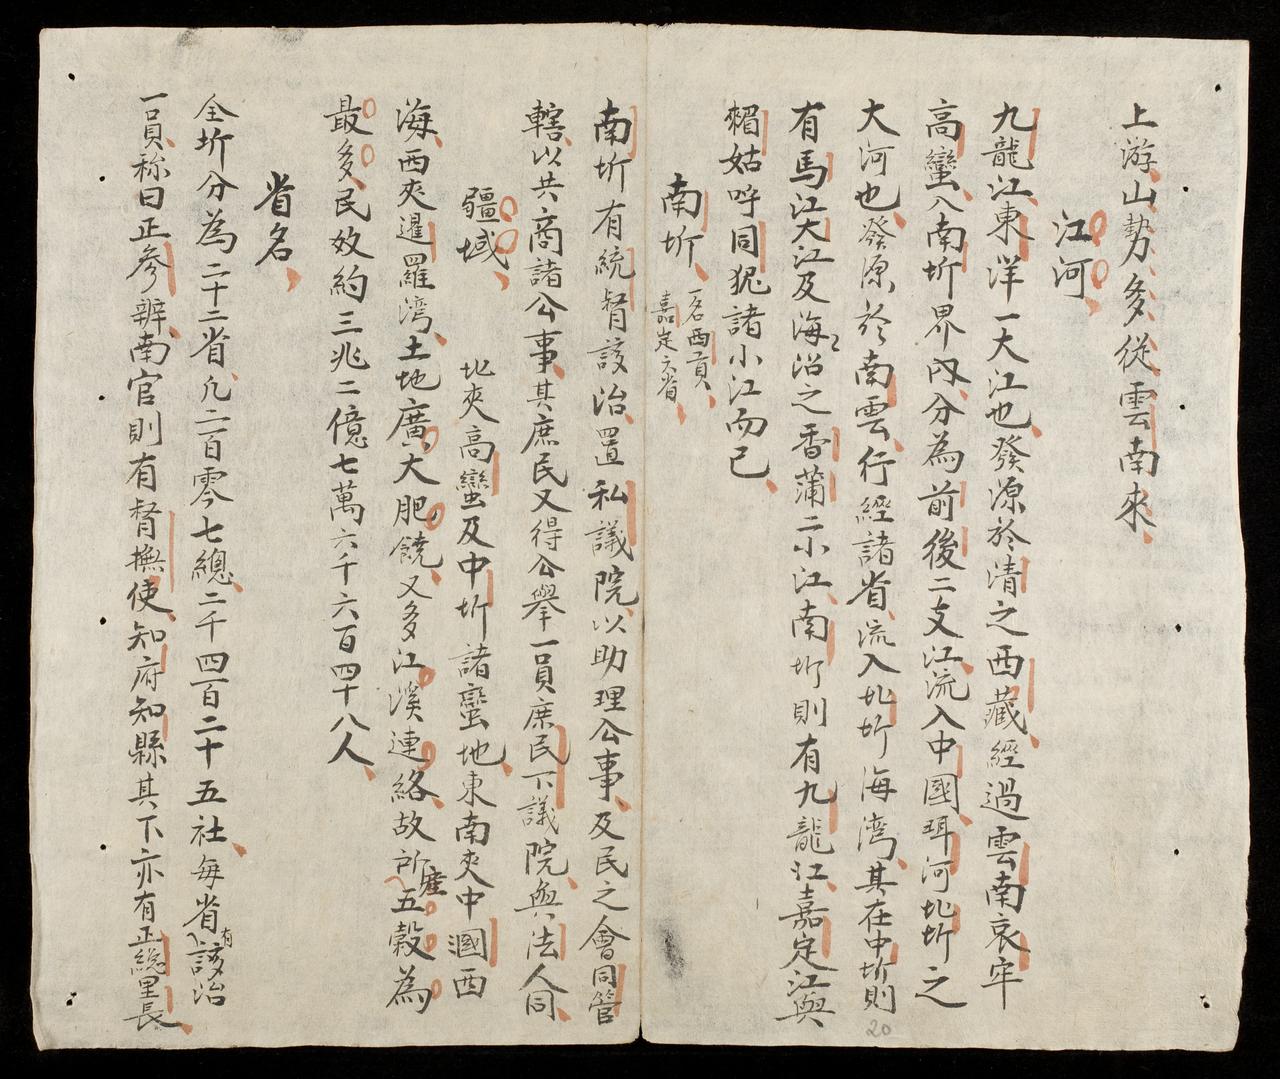 上游山勢多從雲南來
江河
九龍江東洋一大江也發源於清之西藏經過雲南哀牢
高蠻入南圻界內分為前後二支江流入中國珥河北圻之
大河也發源於南雲行經諸省流入北圻海湾其在中圻則
有馬江大江及海沿之香蒲二小江南圻則有九龍江嘉定江與
姑呼同狔諸小江而已
南圻 一名西貢嘉定六省
南圻有統督該治置私議院以助理公事及民之會同管
轄以共商諸公事其庶民又得公舉一員庶民下議院與法人同
疆域 地夾高蠻及中圻諸蠻地東南夾中國西
海西夾暹羅湾土地廣大肥饒又多江溪連絡故所產五穀為
最多民效約三兆二億七萬六千六百四十八人
省名
全圻分為二十二省凡二百零七總二千四百二十五社每省有該治
一員称曰正參辦南官則有督撫使知府知縣其下亦有正総里長
20